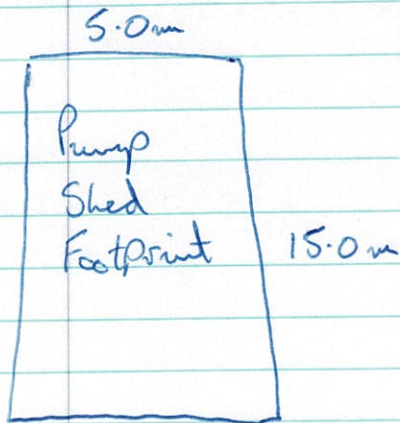 5.0m
Pump
Shed
FootPrint
15.0m